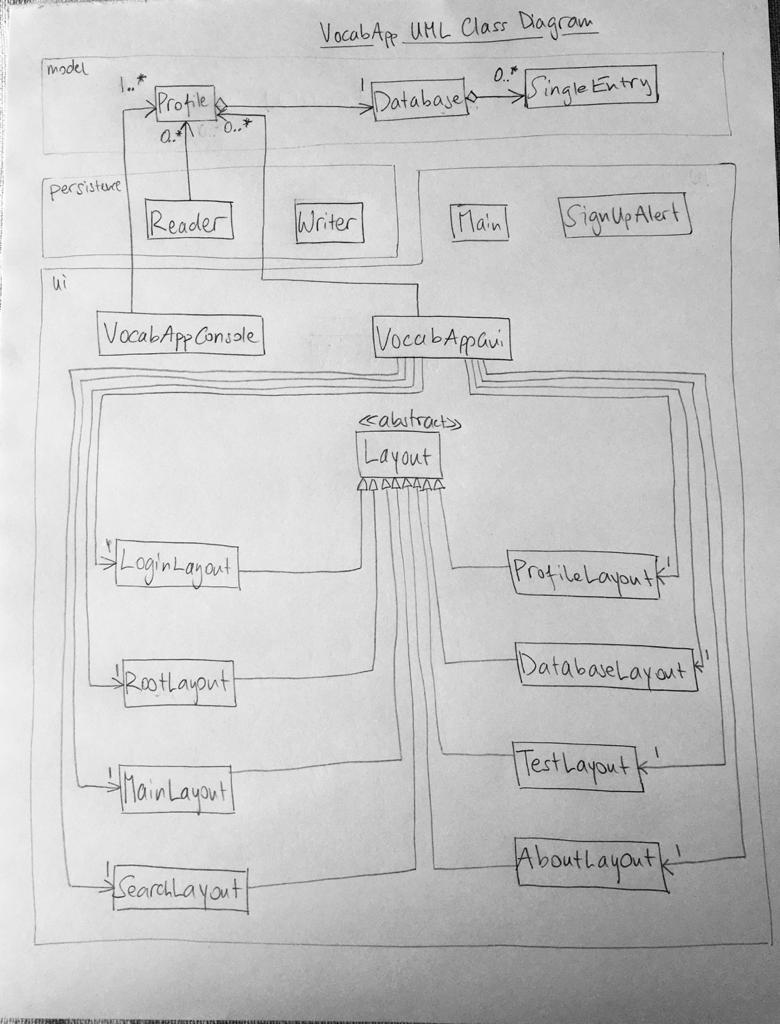 VocabApp UML Class Diagram
model
1..*
Profile
1
Database
0..*
SingleEntry
0..*
0..*
persistence
Reader
Writer
Main
SignUpAlert
ui
VocabAppConsole
VocabAppGui
<<abstract>>
Layout
1
LoginLayout
ProfileLayout
1
1
RootLayout
DatabaseLayout
1
1
MainLayout
TestLayout
1
1
SearchLayout
AboutLayout
1